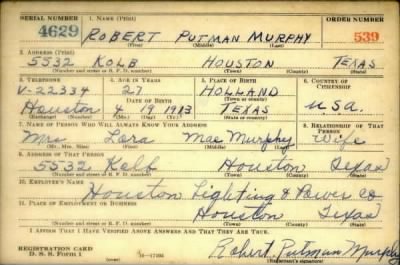 SERIAL NUMBER 1. NAME (Print) ORDER NUMBER
4629 ROBERT PUTMAN MURPHY 539
(First) (Middle) (Last)
2. ADDRESS (Print)
5532 KOLB HOUSTON TEXAS
(Number and street or R. F. D. number) (Town) (County) (State)
3. TELEPHONE 4. AGE IN YEARS 5. PLACE OF BIRTH 6. COUNTRY OF CITIZENSHIP
V-22334 27 HOLLAND
DATE OF BIRTH (Town or county)
Houston 4 19 1913 TEXAS USA.
(Exchange) (Number) (Mo.) (Day) (Yr.) (State or country)
7. NAME OF PERSON WHO WILL ALWAYS KNOW YOUR ADDRESS 8. RELATIONSHIP OF THAT PERSON
Mrs. Lora Mae Murphey Wife
(Mr., Mrs., Miss) (First) (Middle) (Last)
9. ADDRESS OF THAT PERSON
5532 Kolb Houston Texas
(Number and street or R. F. D. number) (Town) (County) (State)
10. EMPLOYER'S NAME
Houston Lighting & Power Co
11. PLACE OF EMPLOYMENT OR BUSINESS
Houston Texas
(Number and street or R. F. D. number) (Town) (County) (State)
I AFFIRM THAT I HAVE VERIFIED ABOVE ANSWERS AND THAT THEY ARE TRUE.
REGISTRATION CARD
D. S. S. FORM 1 (over) Robert Putman Murphy
(Registrant's signature)